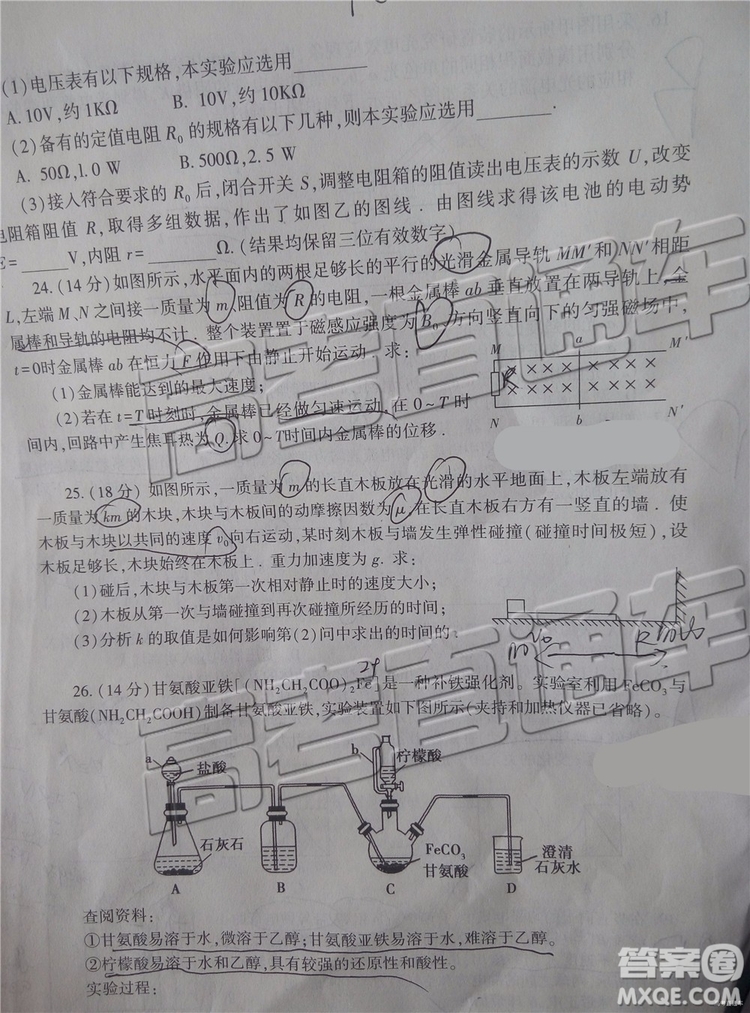 (1)电压表有以下规格,本实验应选用
A. 10V,约1KΩ B. 10V,约10KΩ
(2)备有的定值电阻 R₀ 的规格有以下几种,则本实验应选用 .
A. 50Ω,1.0 W B.500Ω,2.5 W
(3)接入符合要求的 R₀ 后,闭合开关 S,调整电阻箱的阻值读出电压表的示数 U,改变
电阻箱阻值 R,取得多组数据,作出了如图乙的图线. 由图线求得该电池的电动势
E= V,内阻 r= Ω. (结果均保留三位有效数字)
24. (14 分)如图所示,水平面内的两根足够长的平行的光滑金属导轨 MM′和 NN′相距
L,左端 M、N 之间接一质量为 m、阻值为 R 的电阻,一根金属棒 ab 垂直放置在两导轨上,金
属棒和导轨的电阻均不计. 整个装置置于磁感应强度为 B、方向竖直向下的匀强磁场中,
t=0时金属棒 ab 在恒力 F 作用下由静止开始运动. 求:
(1)金属棒能达到的最大速度;
(2)若在 t=T 时刻时,金属棒已经做匀速运动,在 0~T 时
间内,回路中产生焦耳热为 Q.求 0~T时间内金属棒的位移.
M a M′
R
N b N′
25. (18 分) 如图所示,一质量为 m 的长直木板放在光滑的水平地面上,木板左端放有
一质量为 km 的木块,木块与木板间的动摩擦因数为 μ,在长直木板右方有一竖直的墙. 使
木板与木块以共同的速度 v₀ 向右运动,某时刻木板与墙发生弹性碰撞(碰撞时间极短),设
木板足够长,木块始终在木板上. 重力加速度为 g. 求:
(1)碰后,木块与木板第一次相对静止时的速度大小;
(2)木板从第一次与墙碰撞到再次碰撞所经历的时间;
(3)分析 k 的取值是如何影响第(2)问中求出的时间的。
26. (14 分)甘氨酸亚铁[(NH₂CH₂COO)₂Fe]是一种补铁强化剂。实验室利用 FeCO₃ 与
甘氨酸(NH₂CH₂COOH)制备甘氨酸亚铁,实验装置如下图所示(夹持和加热仪器已省略)。
a 盐酸 b 柠檬酸
石灰石 FeCO₃ 甘氨酸 澄清 石灰水
A B C D
查阅资料:
①甘氨酸易溶于水,微溶于乙醇;甘氨酸亚铁易溶于水,难溶于乙醇。
②柠檬酸易溶于水和乙醇,具有较强的还原性和酸性。
实验过程:
高考直通车
高考直通车
答案圈
MXQE.COM